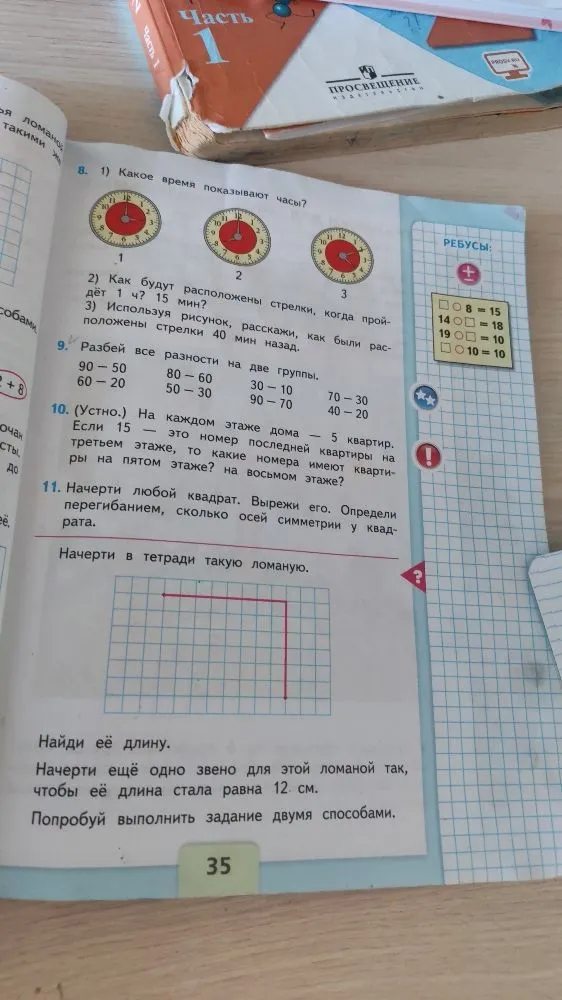 Часть 1
Часть
1
ПРОСВЕЩЕНИЕ
ИЗДАТЕЛЬСТВО
PROSV.RU
ломаной
такими
8. 1) Какое время показывают часы?
1
2
3
2) Как будут расположены стрелки, когда прой-
дёт 1 ч? 15 мин?
3) Используя рисунок, расскажи, как были рас-
положены стрелки 40 мин назад.
9. Разбей все разности на две группы.
90 − 50 80 − 60 30 − 10 70 − 30
60 − 20 50 − 30 90 − 70 40 − 20
10. (Устно.) На каждом этаже дома — 5 квартир.
Если 15 — это номер последней квартиры на
третьем этаже, то какие номера имеют кварти-
ры на пятом этаже? на восьмом этаже?
11. Начерти любой квадрат. Вырежи его. Определи
перегибанием, сколько осей симметрии у квад-
рата.
Начерти в тетради такую ломаную.
Найди её длину.
Начерти ещё одно звено для этой ломаной так,
чтобы её длина стала равна 12 см.
Попробуй выполнить задание двумя способами.
35
РЕБУСЫ:
±
□ ○ 8 = 15
14 ○ □ = 18
19 ○ □ = 10
□ ○ 10 = 10
!
?